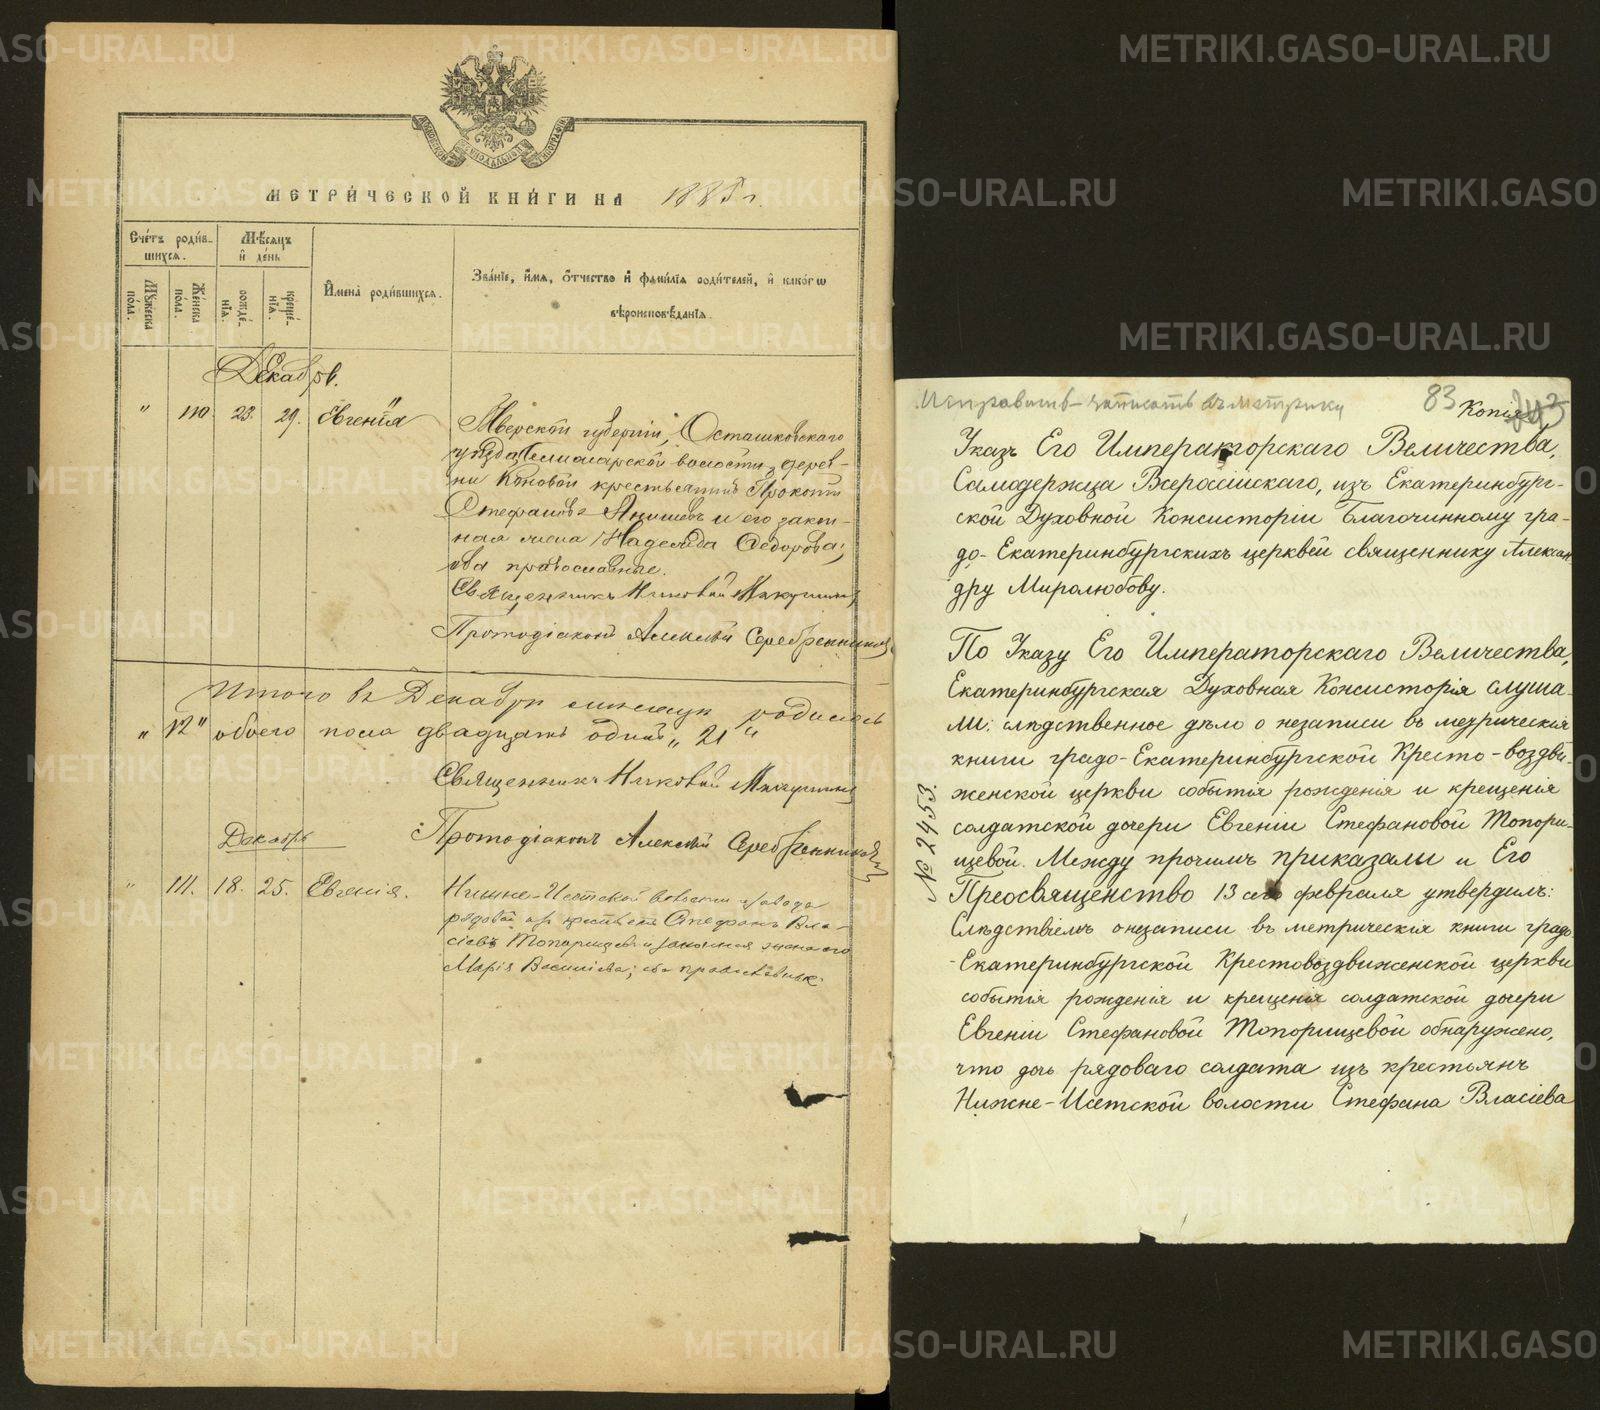 МЕТРИ́ЧЕСКОЙ КНИ́ГИ НА 1885 г.
Сче́тъ роди́в-
шихся.
Мѣ́сяцъ
и де́нь
Му́жеска по́ла.
Же́нска по́ла.
рожде́-
нїя.
креще́-
нїя.
Имена̀ роди́вшихся.
Зва́нїе, и́мя, о́тчество и фами́лїя роди́телей, и како́гѡ
вѣроисповѣ́данїя.
Декабрь.
" 110. 23. 29. Евгенія
Тверской губерніи, Осташковскаго
уѣзда, волости, дерев-
ни крестьянинъ Прокопій
Стефановъ и его закон-
ная жена Надежда Федорова,
оба православные.
Священникъ Николай
Протодіаконъ Алексѣй Серебренниковъ
Итого въ Декабрѣ мѣсяцѣ родилось
" 12 " обоего пола двадцать одинъ " 21 "
Священникъ Николай
Протодіаконъ Алексѣй Серебренниковъ
Декабрь
" 111. 18. 25. Евгенія.
Нижне-Исетской волости и завода
рядовой изъ крестьянъ Стефанъ Вла-
сіевъ Топорищевъ и законная жена его
Марія Василіева; оба православные.
Исправить - записать въ метрику
83
Копія
Указъ Его Императорскаго Величества,
Самодержца Всероссійскаго, изъ Екатеринбург-
ской Духовной Консисторіи Благочинному гра-
до-Екатеринбургскихъ церквей священнику Алексан
дру Миролюбову.
По Указу Его Императорскаго Величества,
Екатеринбургская Духовная Консисторія слуша-
ли: слѣдственное дѣло о незаписи въ метрическія
книги градо-Екатеринбургской Кресто-воздви-
женской церкви событія рожденія и крещенія
солдатской дочери Евгеніи Стефановой Топори-
щевой. Между прочимъ приказали и Его
Преосвященство 13 сего февраля утвердилъ:
Слѣдствіемъ о незаписи въ метрическія книги градо
-Екатеринбургской Крестовоздвиженской церкви
событія рожденія и крещенія солдатской дочери
Евгеніи Стефановой Топорищевой обнаружено,
что дочь рядоваго солдата изъ крестьянъ
Нижне-Исетской волости Стефана Власіева
№ 2453.
METRIKI.GASO-URAL.RU